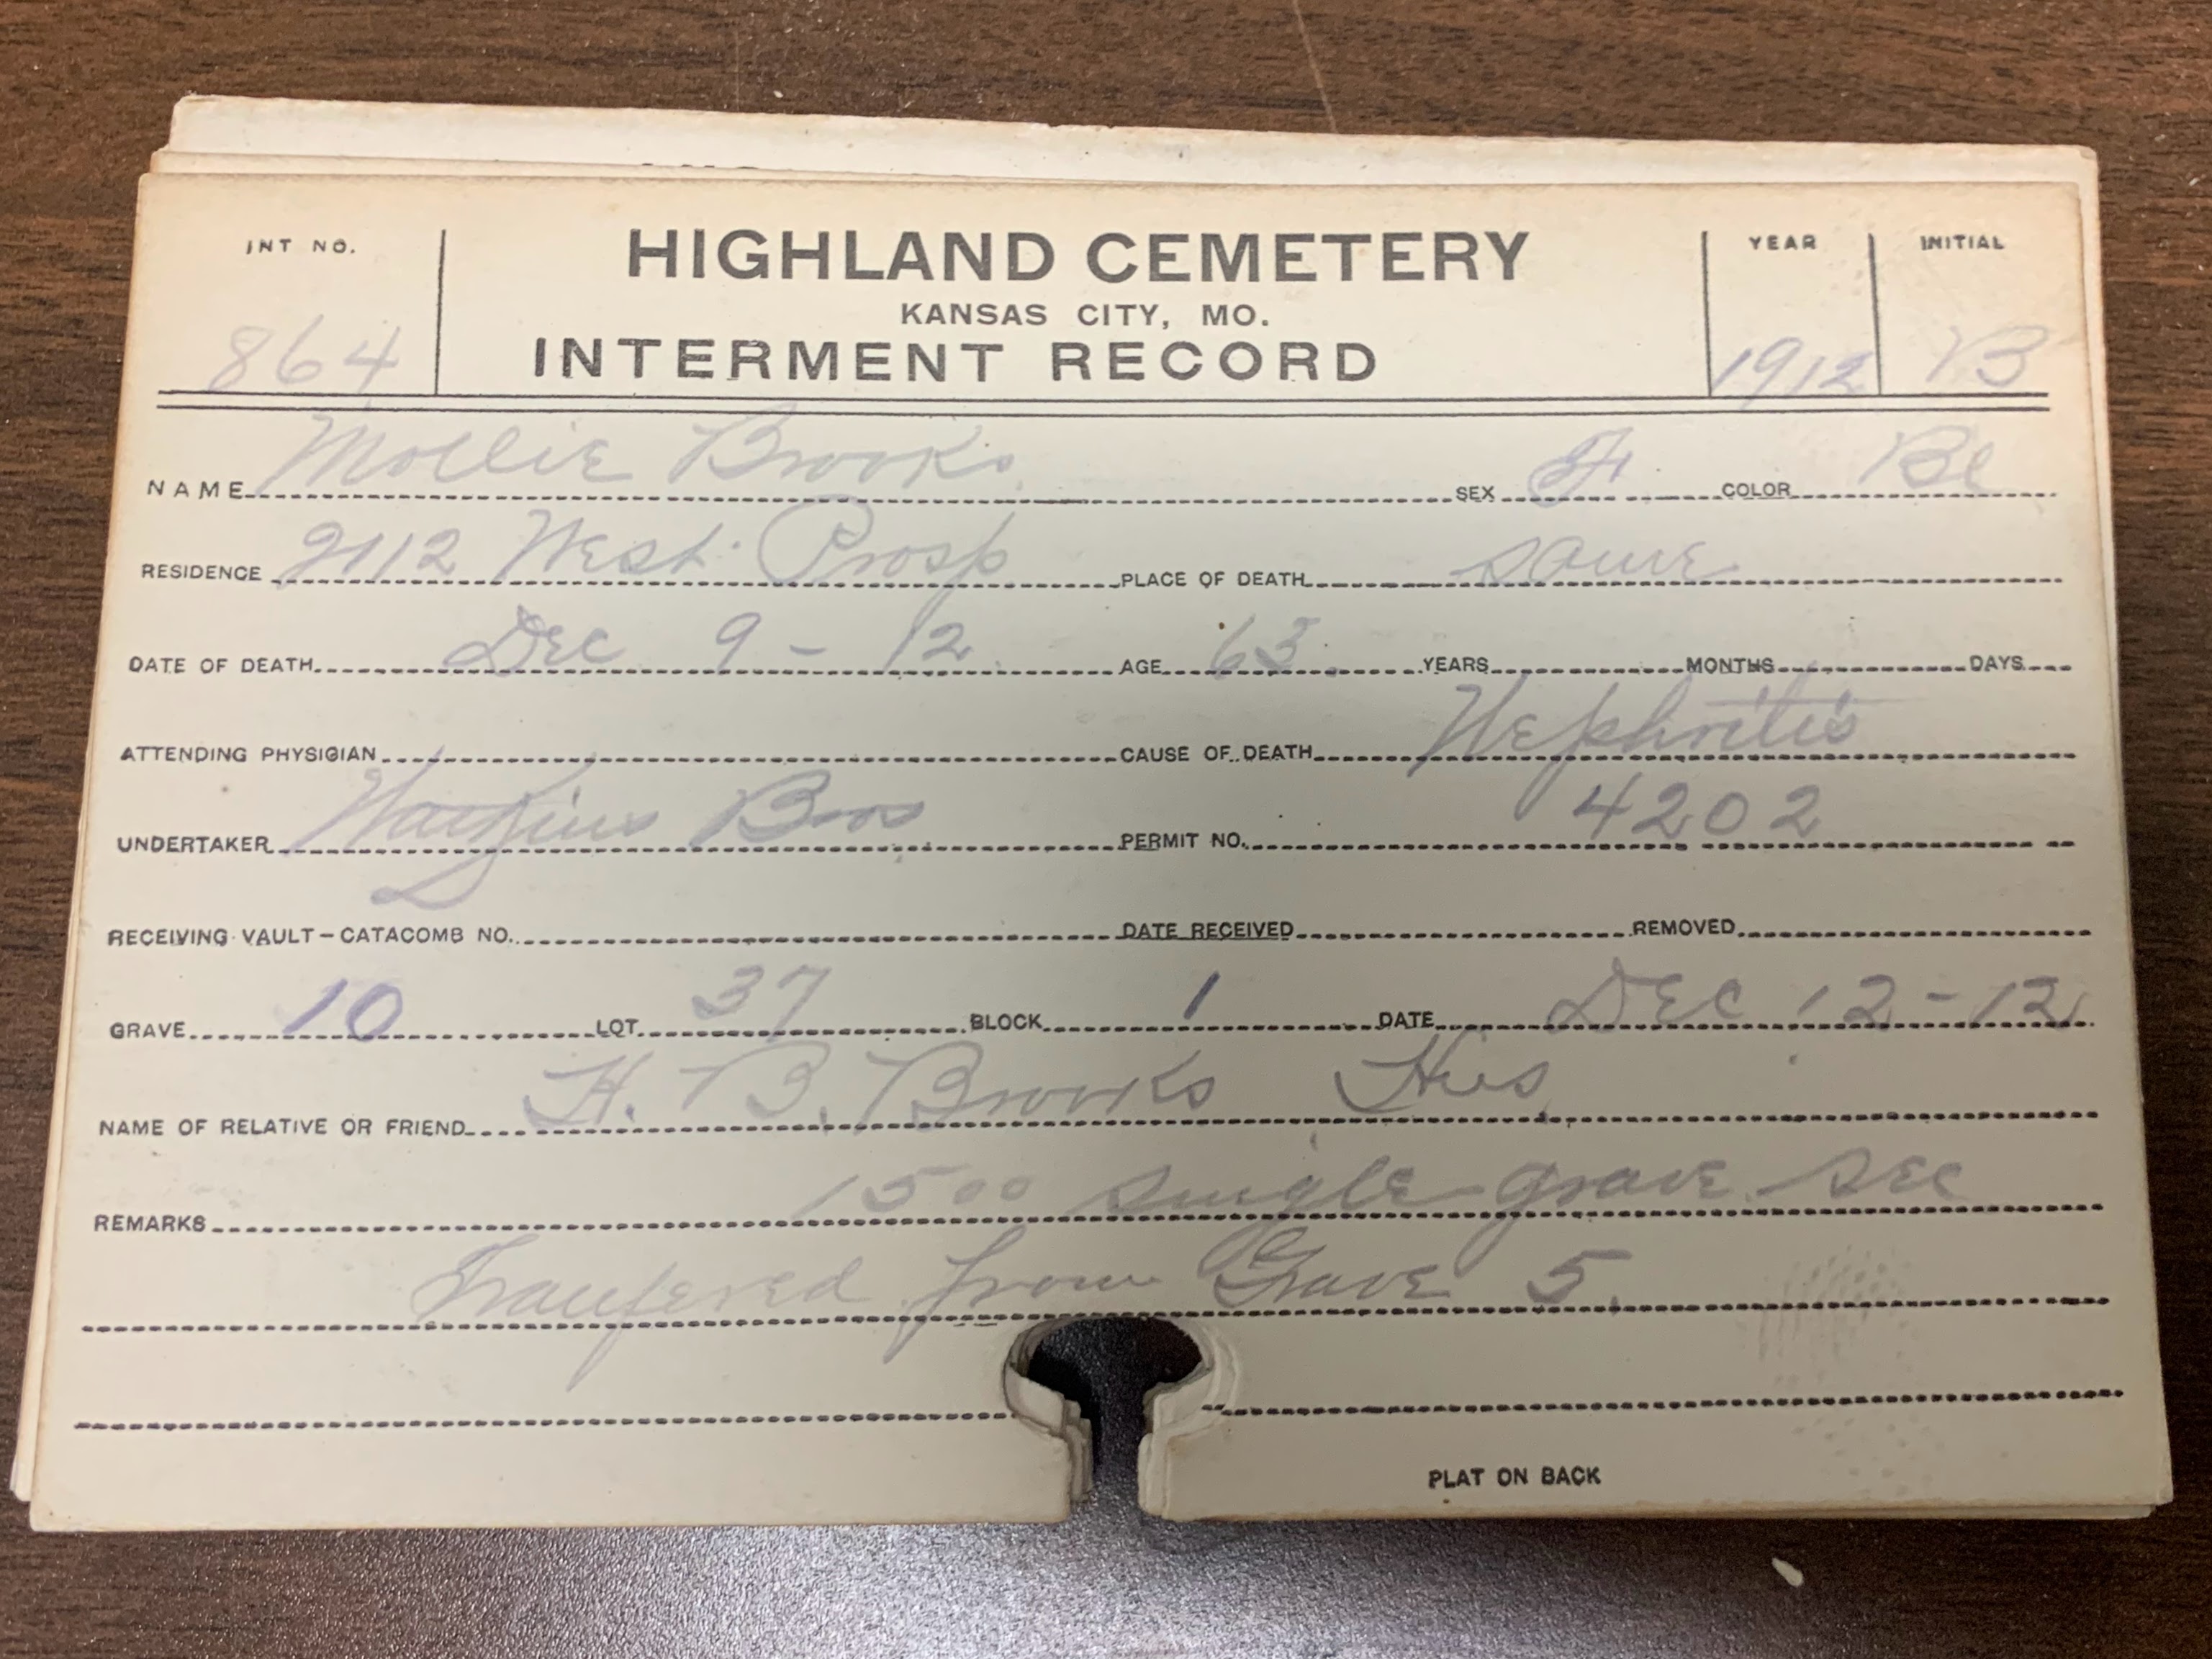 INT NO. HIGHLAND CEMETERY YEAR INITIAL
KANSAS CITY, MO.
864 INTERMENT RECORD 1912 B
NAME Mollie Brooks SEX F COLOR Bl
RESIDENCE 2112 West Prosp PLACE OF DEATH same
DATE OF DEATH Dec 9 - 12 AGE 63 YEARS MONTHS DAYS
ATTENDING PHYSICIAN CAUSE OF DEATH Nephritis
UNDERTAKER Watkins Bros PERMIT NO. 4202
RECEIVING VAULT-CATACOMB NO. DATE RECEIVED REMOVED
GRAVE 10 LOT 37 BLOCK 1 DATE Dec 12-12
NAME OF RELATIVE OR FRIEND H. B. Brooks Hus
REMARKS 15 00 single grave sec
Tranfered from Grave 5.
PLAT ON BACK